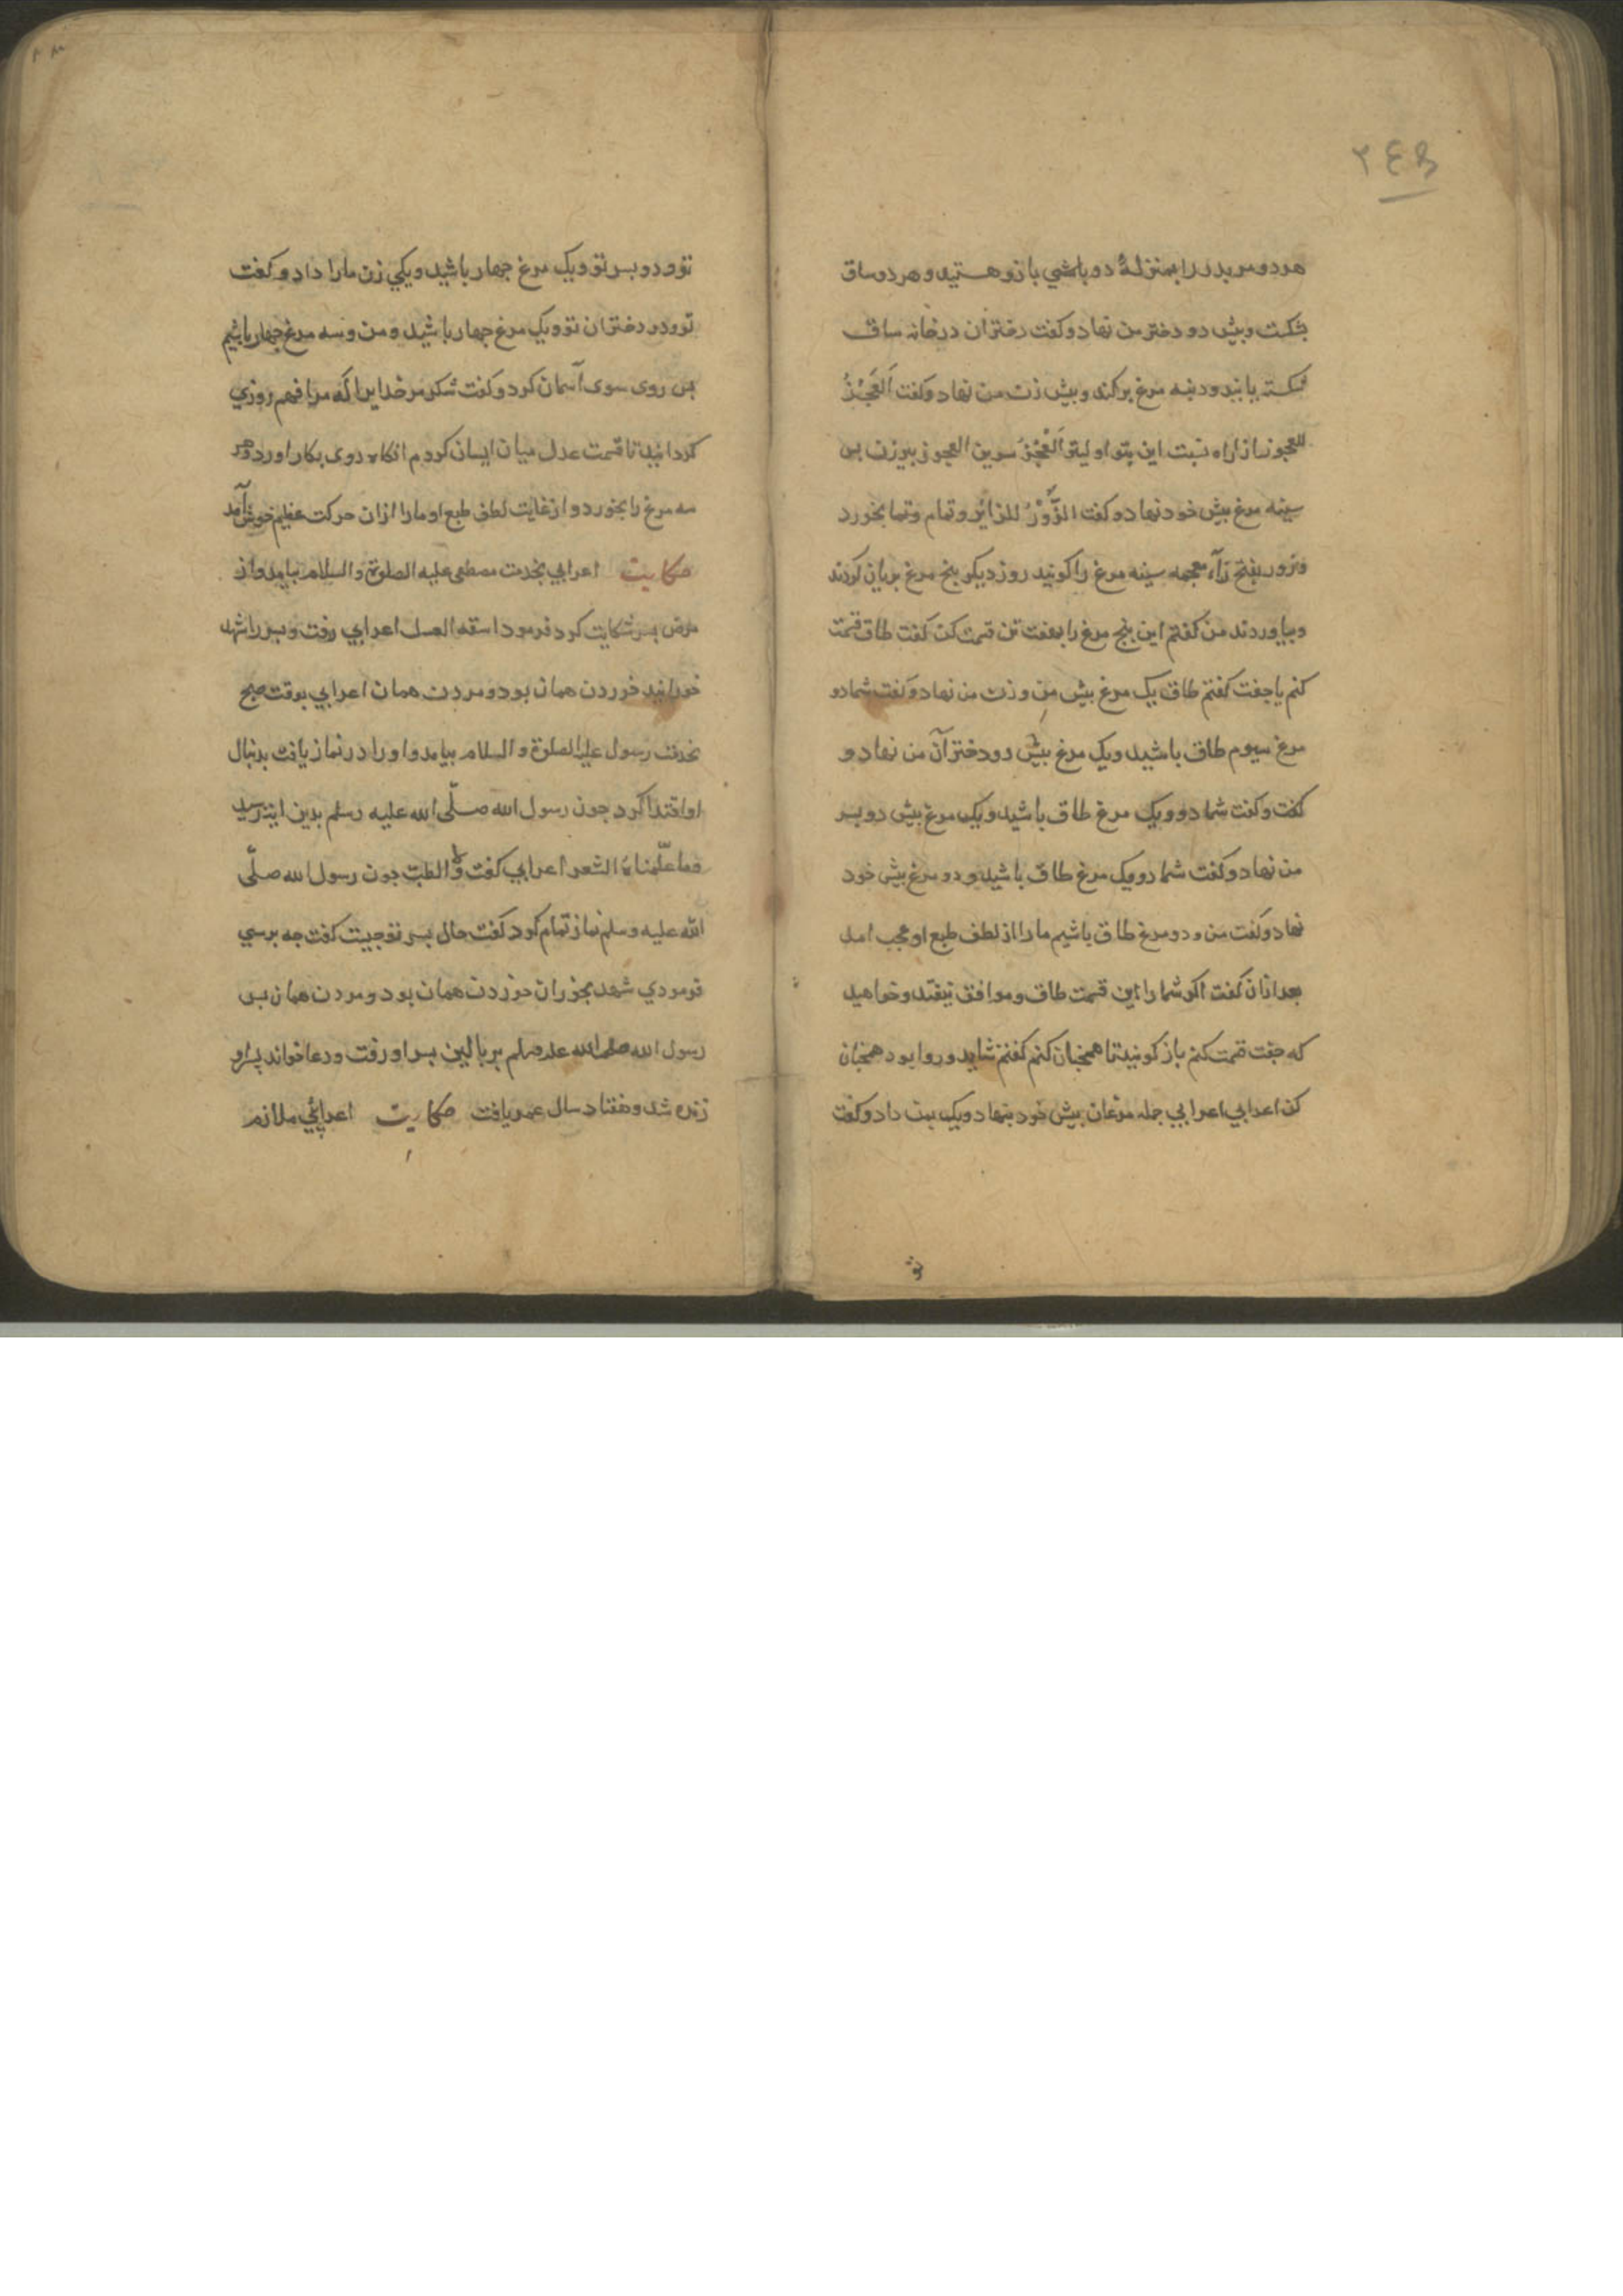 ۲٤۵
هر دو مر پدر را بمنزلهٔ دو باشی بازو هستید و هر دو ساق
بشکست و بیش دو دختر من نهاد و کفت دختران در خانه ساق
شکسته بایند و دنبه مرغ برکند و بیش زن من نهاد و کفت اَلعَجُزُ
للعجوز از راه نسبت این بتو اولیتر اَلعَجُزُ سرین العجوز بیرزن بس
سینه مرغ بیش خود نهاد و کفت الزَّوْرُ للزائر و تمام و تما بخورد
وزور بفتح زآء معجمه سینه مرغ را کویند روز دیکر بنج مرغ بریان کردند
و بیاوردند من کفتم این بنج مرغ را بهفت تن قسمت کن کفت طاق قسمت
کنم یا جفت کفتم طاق یک مرغ بیش من و زن من نهاد و کفت شما دو
مرغ سیوم طاق باشید و یک مرغ بیش دو دختر آن من نهاد و
کفت و کفت شما دو و یک مرغ طاق باشید و یک مرغ بیش دو بسر
من نهاد و کفت شما دو و یک مرغ طاق باشید و دو مرغ بیش خود
نهاد و کفت من و دو مرغ طاق باشیم ما را از لطف طبع او عجب امد
بعد ازان کفت اکر شما را این قسمت طاق و موافق نیفتد و خواهید
که جفت قسمت کنم باز کویید تا همجنان کنم کفتم شاید و روا بود همجنان
کن اعرابی اعرابی جمله مرغان بیش خود بنهاد و یک بمن داد و کفت
تو
تو و دو بسر تو و یک مرغ جهار باشید و یکی زن ما را داد و کفت
تو و دو دختران تو و یک مرغ جهار باشید و من و سه مرغ جهار باشیم
بس روی سوی آسمان کرد و کفت شکر مر خدایرا که مرا فهم روزی
کردانید تا قسمت عدل میان ایسان کردم انکاه روی بکار اورد و هر
سه مرغ را بخورد و از غایت لطف طبع او ما را ازان حرکت عظیم خوش آمد
حکایت اعرابی بخدمت مصطفی علیه الصلوة و السلام بیامد و از
مرض بسر شکایت کرد فرمود اسقه العسل اعرابی رفت و بسر را شهد
خورانید خوردن همان بود و مردن همان اعرابی بوقت صبح
بخدمت رسول علیه الصلوة و السلام بیامد و او را در نماز یافت بدنبال
او اقتدا کرد جون رسول الله صلّی الله علیه وسلم بدین ایت رسید
وما علّمناه الشعر اعرابی کفت ولا الطبّ جون رسول الله صلّی
الله علیه وسلم نماز تمام کرد کفت حال بسر تو جیست کفت جه برسی
فرمودی شهد بخوران خوردن همان بود و مردن همان بس
رسول الله صلی الله علیه وسلم بر بالین بسر او رفت و دعا خواند بسر او
زنده شد و هفتاد سال عمر یافت حکایت اعرابیّ ملازم